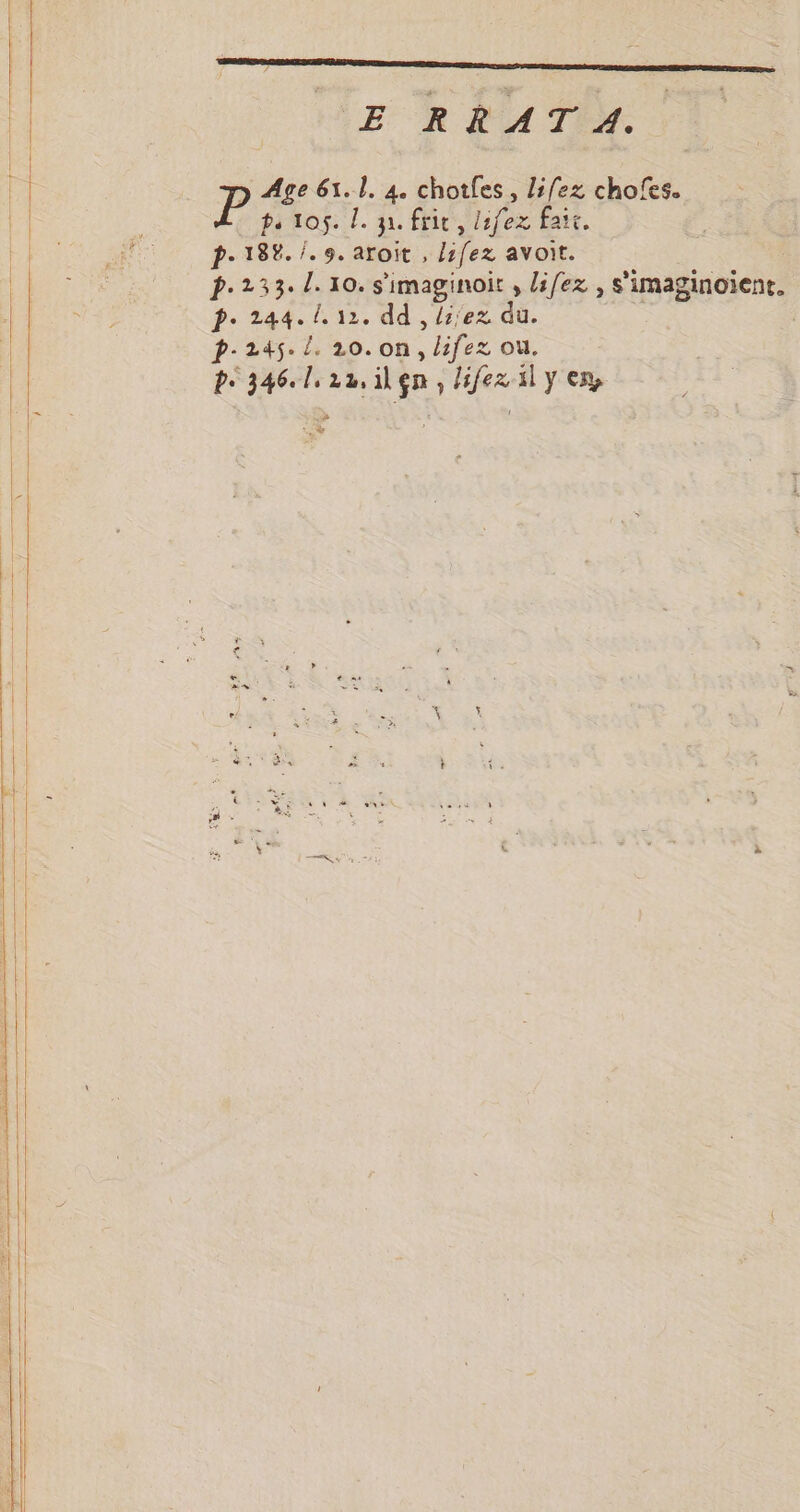 E R R A T A.
PAge 61. l. 4. chotſes, liſez choſes.
p. 105. l. 31. frit, liſez fait.
p. 188. l. 9. aroit, liſez avoit.
p. 233. l. 10. s'imaginoit, liſez, s'imaginoient.
p. 244. l. 12. dd, liſez du.
p. 245. l. 20. on, liſez ou.
p. 346. l. 22. il en, liſez il y en,